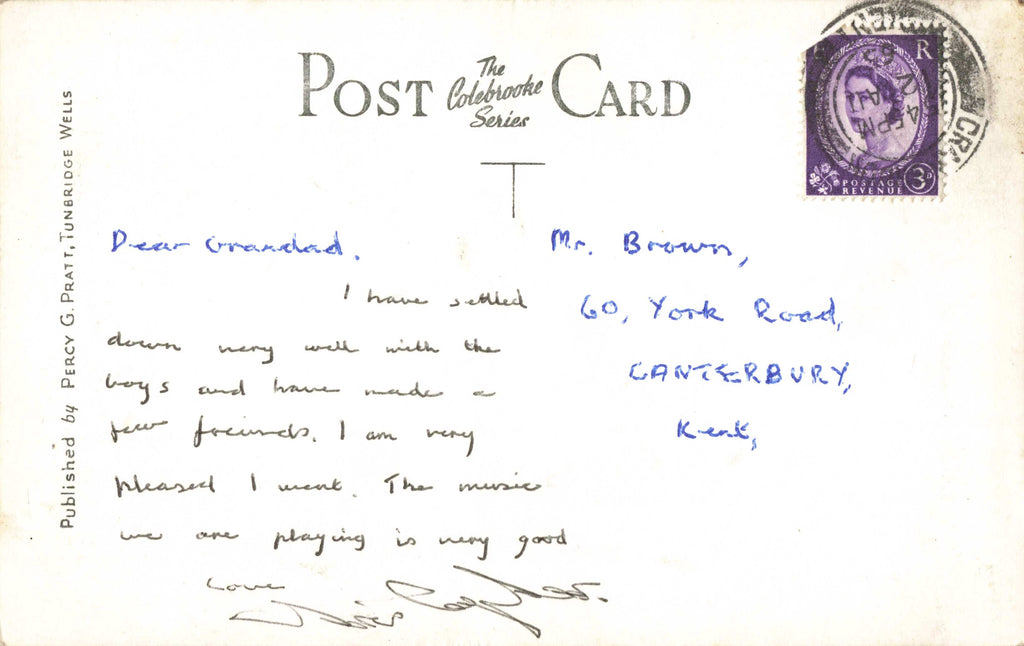 POST The Colebrooke Series CARD
Published by PERCY G. PRATT, TUNBRIDGE WELLS
R
POSTAGE
REVENUE
3D
45 PM
Dear Grandad.
I have settled
down very well with the
boys and have made a
few freinds. I am very
pleased I went. The music
we are playing is very good
Love
Mr. Brown,
60, York Road,
CANTERBURY,
Kent,